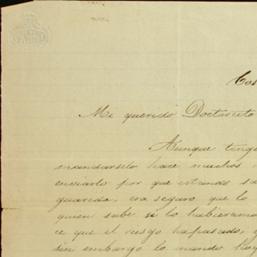 Cos
Mi querido Doctorcito
Aunque teng
mandarselo hace muchos
enviarlo por que estamos
guarda, era seguro que lo
quien sabe si lo hubieram
ce que el riesgo ha pasado, y
sin embargo lo mando hoy